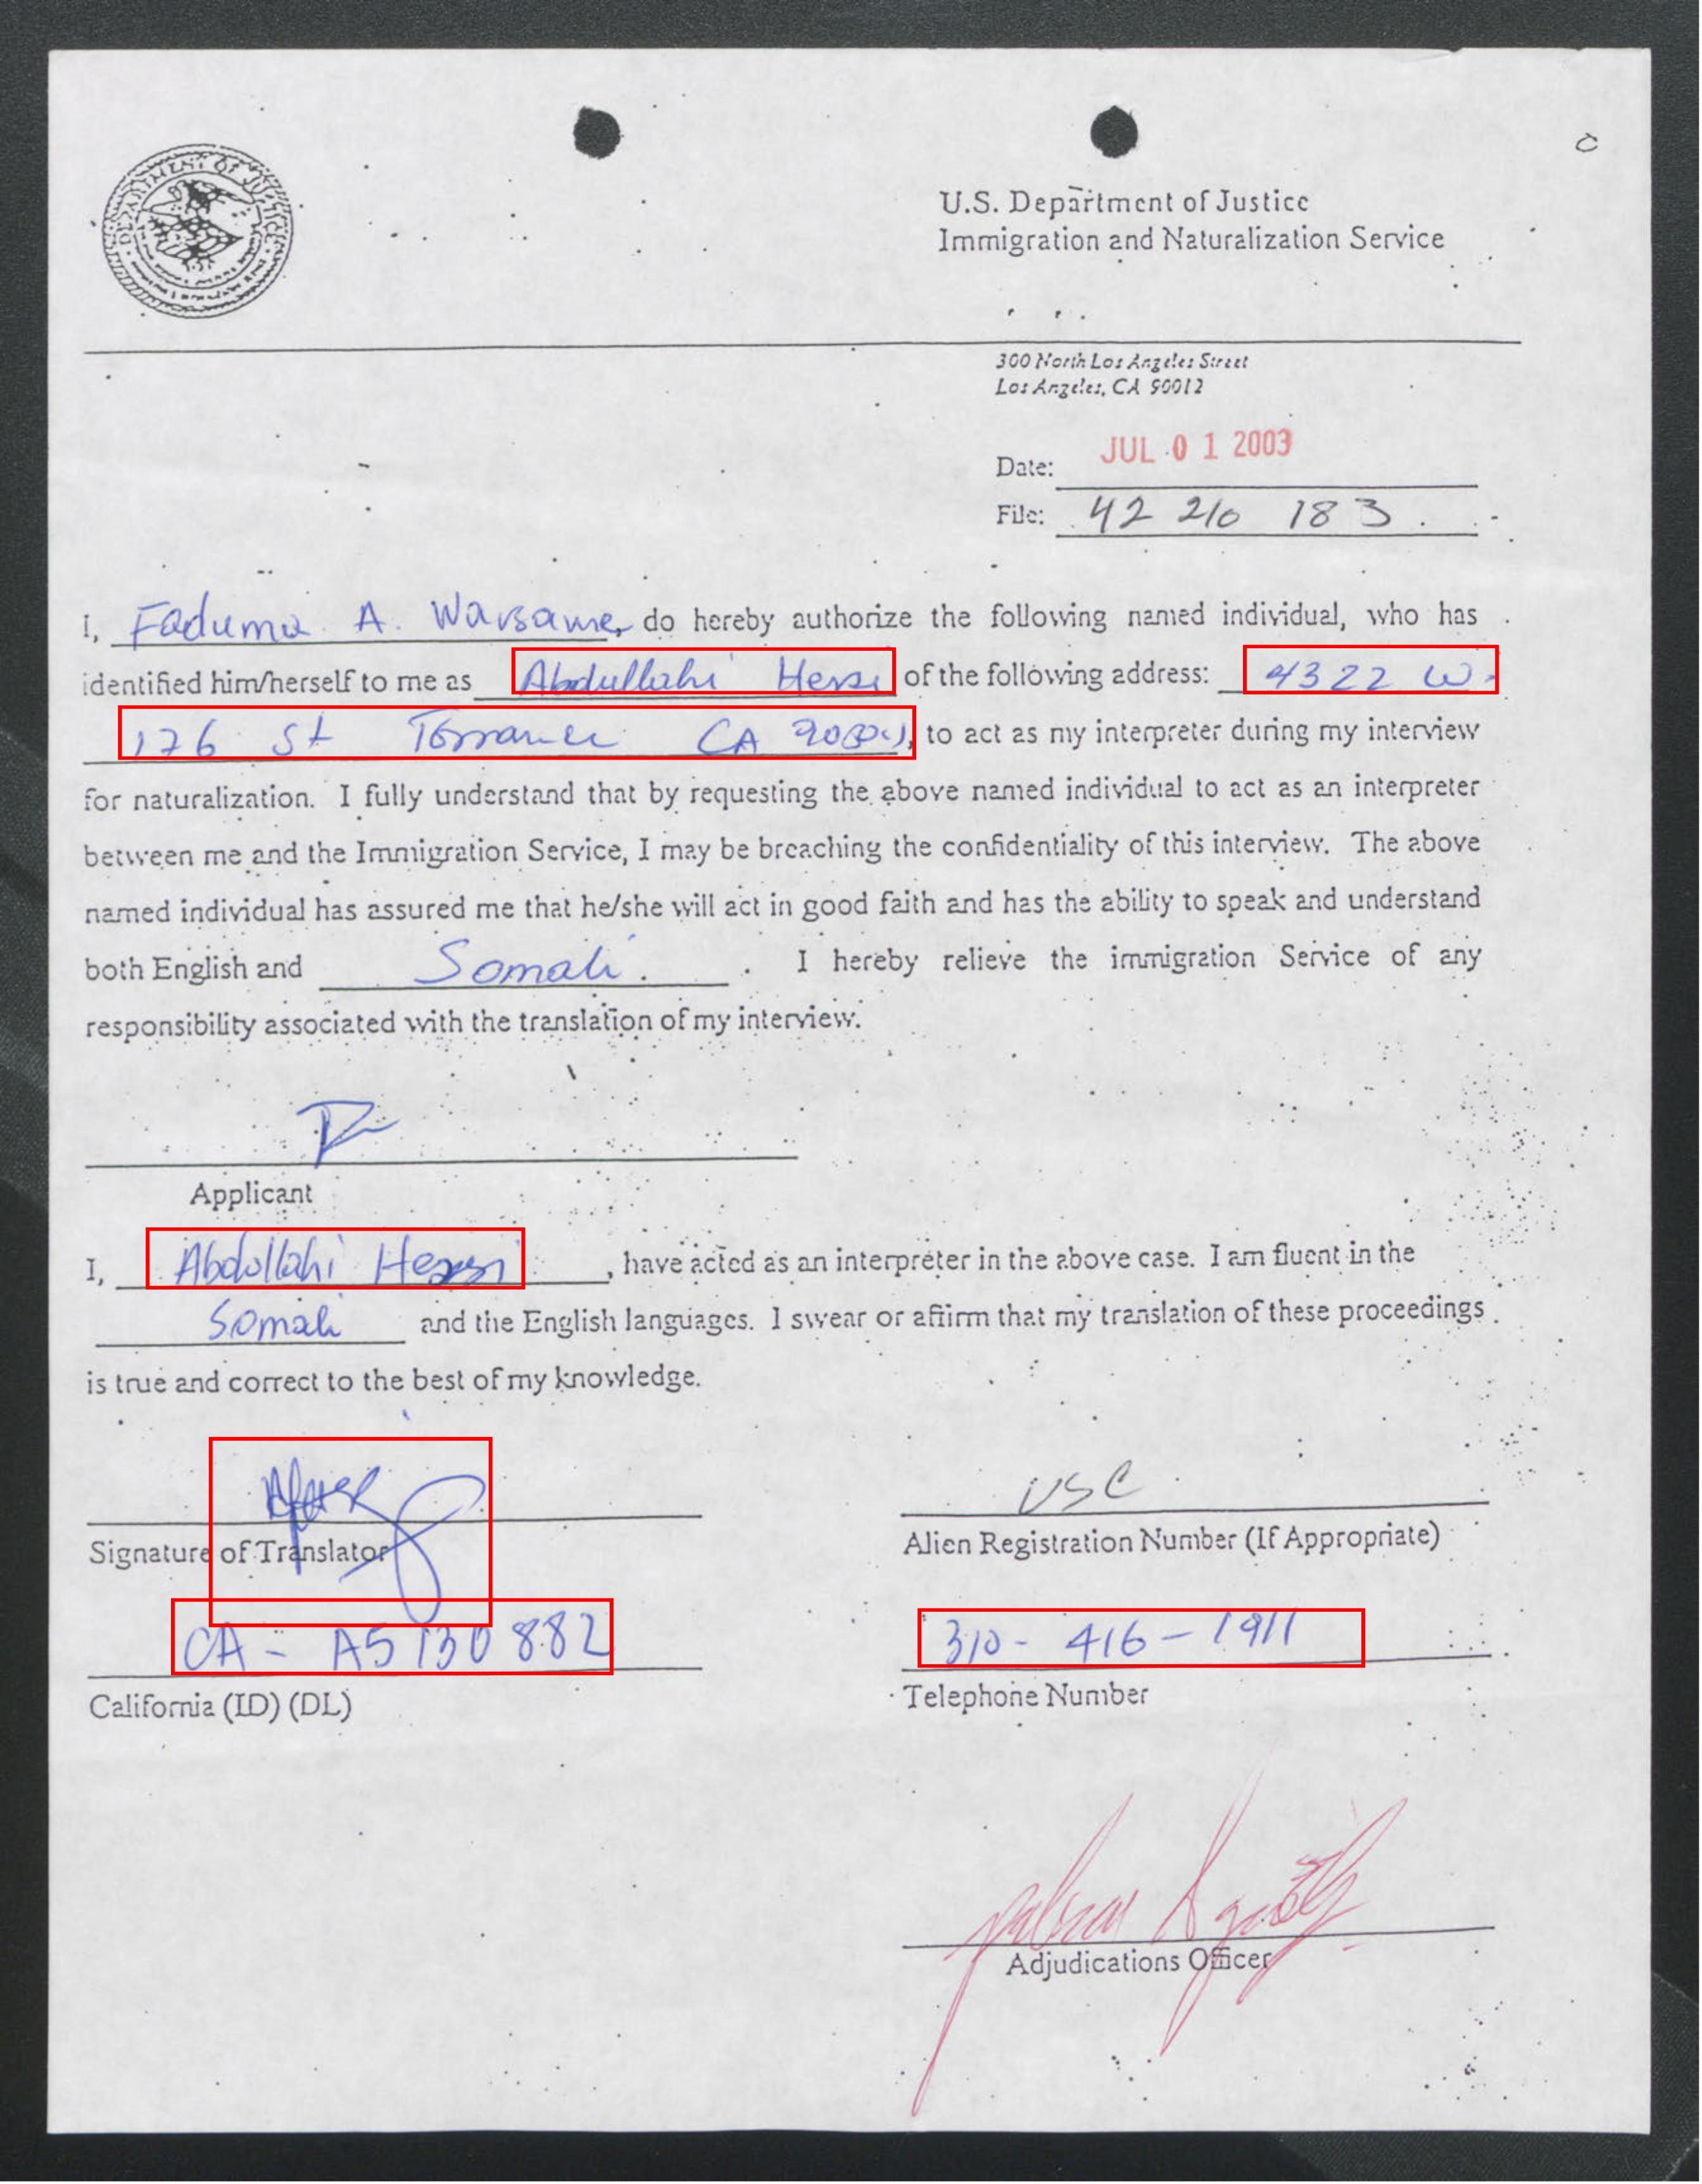 DEPARTMENT OF JUSTICE
U.S. Department of Justice
Immigration and Naturalization Service
300 North Los Angeles Street
Los Angeles, CA 90012
Date: JUL 01 2003
File: 42 210 183
I, Faduma A. Warsame, do hereby authorize the following named individual, who has
identified him/herself to me as Abdullahi Hersi of the following address: 4322 W.
176 St Torrance CA, to act as my interpreter during my interview
for naturalization. I fully understand that by requesting the above named individual to act as an interpreter
between me and the Immigration Service, I may be breaching the confidentiality of this interview. The above
named individual has assured me that he/she will act in good faith and has the ability to speak and understand
both English and Somali. I hereby relieve the immigration Service of any
responsibility associated with the translation of my interview.
Applicant
I, Abdullahi Hersi, have acted as an interpreter in the above case. I am fluent in the
Somali and the English languages. I swear or affirm that my translation of these proceedings
is true and correct to the best of my knowledge.
USC
Signature of Translator
Alien Registration Number (If Appropriate)
CA - A5130882
310 - 416 - 1911
California (ID) (DL)
Telephone Number
Adjudications Officer